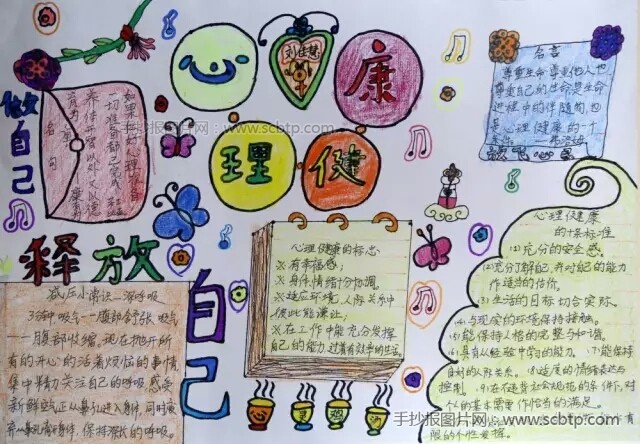 心
理
健
康
做自己
释放
自己
名言
尊重生命、尊重他人也
尊重自己的生命,是生命
进程中的伴随物,也
是心理健康的一个
名句
手抄报图片网:www.scbtp.com
心理健康的标志
※有幸福感;
※身体、情绪十分协调。
※适应环境,人际关系中
彼此能谦让。
※在工作中能充分发挥
自己的能力,过着有效率的生活。
减压小常识—深呼吸
腹部收缩,现在抛开所
有的开心的活着烦恼的事情
集中精力关注自己的呼吸,感受
新鲜空气正从鼻孔进入身体,同时废
保持深长的呼吸。
心理健康
的十条标准
(1)充分的安全感。
(2)充分了解自己,并对自己的能力
作适当的估价。
(3)生活的目标切合实际。
(4)与现实的环境保持接触。
(5)能保持人格的完整与和谐。
(6)具有从经验中学习的能力。(7)能保持
良好的人际关系。(8)适度的情绪表达与
控制。(9)在不违背社会规范的条件下,对
个人的基本需要作恰当的满足。
限的个性发挥。
心灵鸡汤
手抄报图片网:www.scbtp.com